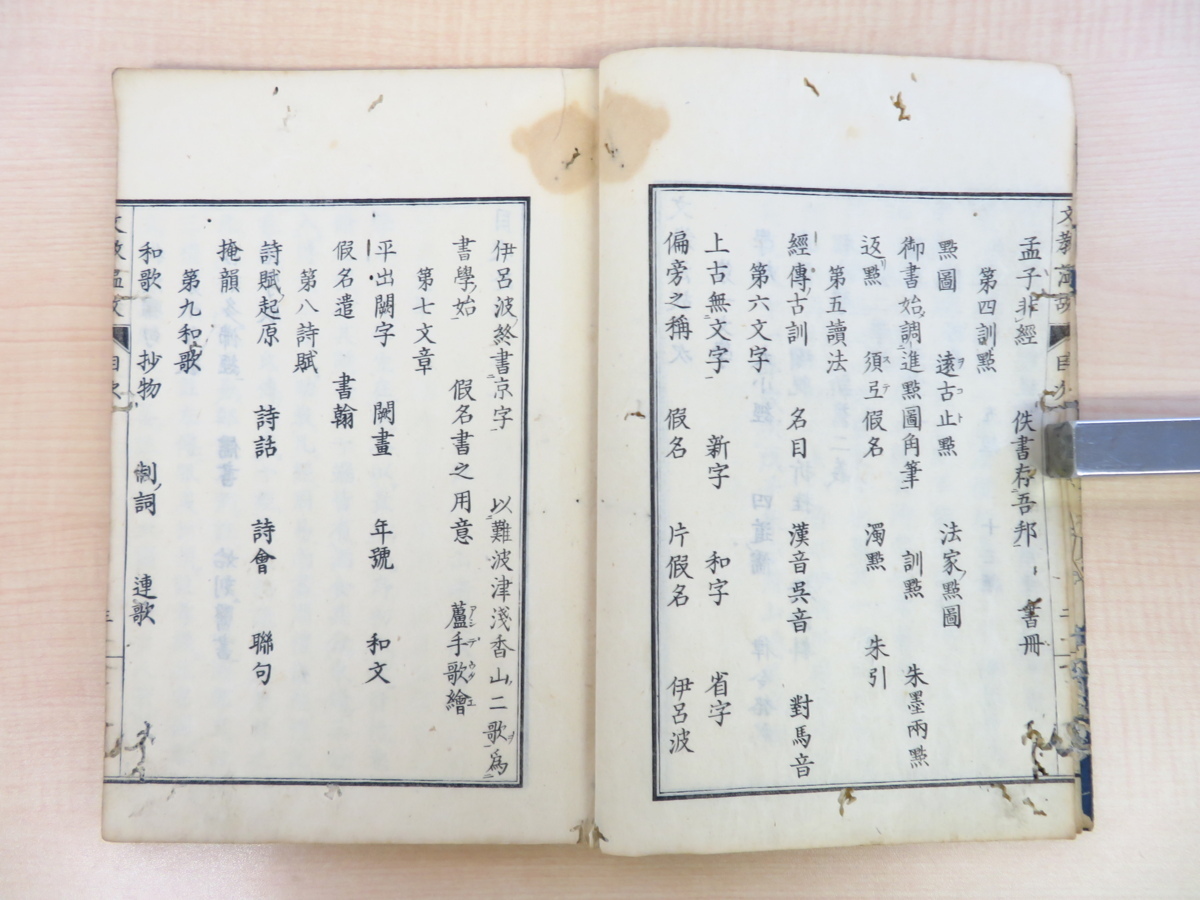 孟子非經 佚書存吾邦 書冊
第四訓㸃
㸃圖 遠古止㸃 法家㸃圖
御書始調進㸃圖角筆 訓㸃 朱墨兩㸃
返㸃 須弖假名 濁㸃 朱引
第五讀法
經傳古訓 名目 漢音吳音 對馬音
第六文字
上古無文字 新字 和字 省字
偏旁之稱 假名 片假名 伊呂波
伊呂波終書京字 以難波津淺香山二歌爲
書學始 假名書之用意 蘆手歌繪
第七文章
平出闕字 闕畫 年號 和文
假名遣 書翰
第八詩賦
詩賦起原 詩話 詩會 聯句
掩韻
第九和歌
和歌 抄物 制詞 連歌